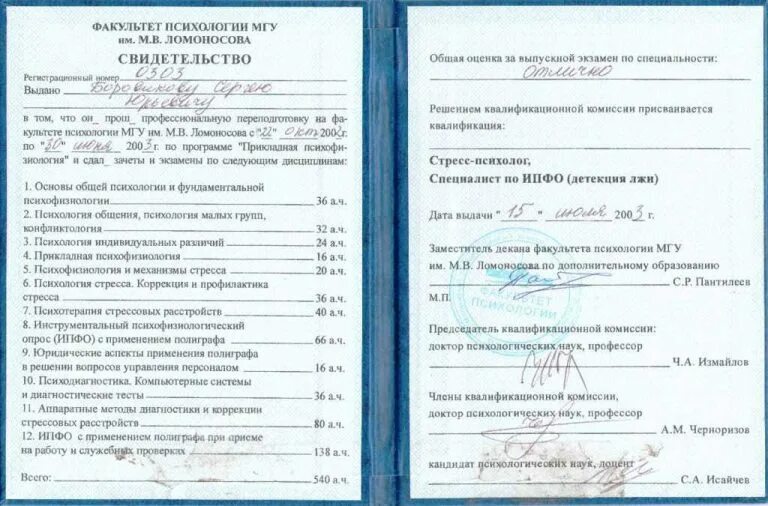 ФАКУЛЬТЕТ ПСИХОЛОГИИ МГУ
им. М.В. ЛОМОНОСОВА
СВИДЕТЕЛЬСТВО
Регистрационный номер 0303
Выдано Боровикову Сергею
Юрьевичу
в том, что он_ прош_ профессиональную переподготовку на фа-
культете психологии МГУ им. М.В. Ломоносова с "22" окт 2002г.
по "30" июня 2003 г. по программе "Прикладная психофи-
зиология" и сдал_ зачеты и экзамены по следующим дисциплинам:
1. Основы общей психологии и фундаментальной
психофизиологии 36 а.ч.
2. Психология общения, психология малых групп,
конфликтология 32 а.ч.
3. Психология индивидуальных различий 24 а.ч.
4. Прикладная психофизиология 16 а.ч.
5. Психофизиология и механизмы стресса 20 а.ч.
6. Психология стресса. Коррекция и профилактика
стресса 36 а.ч.
7. Психотерапия стрессовых расстройств 40 а.ч.
8. Инструментальный психофизиологический
опрос (ИПФО) с применением полиграфа 66 а.ч.
9. Юридические аспекты применения полиграфа
в решении вопросов управления персоналом 16 а.ч.
10. Психодиагностика. Компьютерные системы
и диагностические тесты 36 а.ч.
11. Аппаратные методы диагностики и коррекции
стрессовых расстройств 80 а.ч.
12. ИПФО с применением полиграфа при приеме
на работу и служебных проверках 138 а.ч.
Всего: 540 а.ч.
Общая оценка за выпускной экзамен по специальности:
Отлично
Решением квалификационной комиссии присваивается
квалификация:
Стресс-психолог,
Специалист по ИПФО (детекция лжи)
Дата выдачи "15" июля 2003 г.
Заместитель декана факультета психологии МГУ
им. М.В. Ломоносова по дополнительному образованию
С.Р. Пантилеев
М.П.
ФАКУЛЬТЕТ
ПСИХОЛОГИИ
Председатель квалификационной комиссии:
доктор психологических наук, профессор
Ч.А. Измайлов
Члены квалификационной комиссии,
доктор психологических наук, профессор
А.М. Черноризов
кандидат психологических наук, доцент
С.А. Исайчев